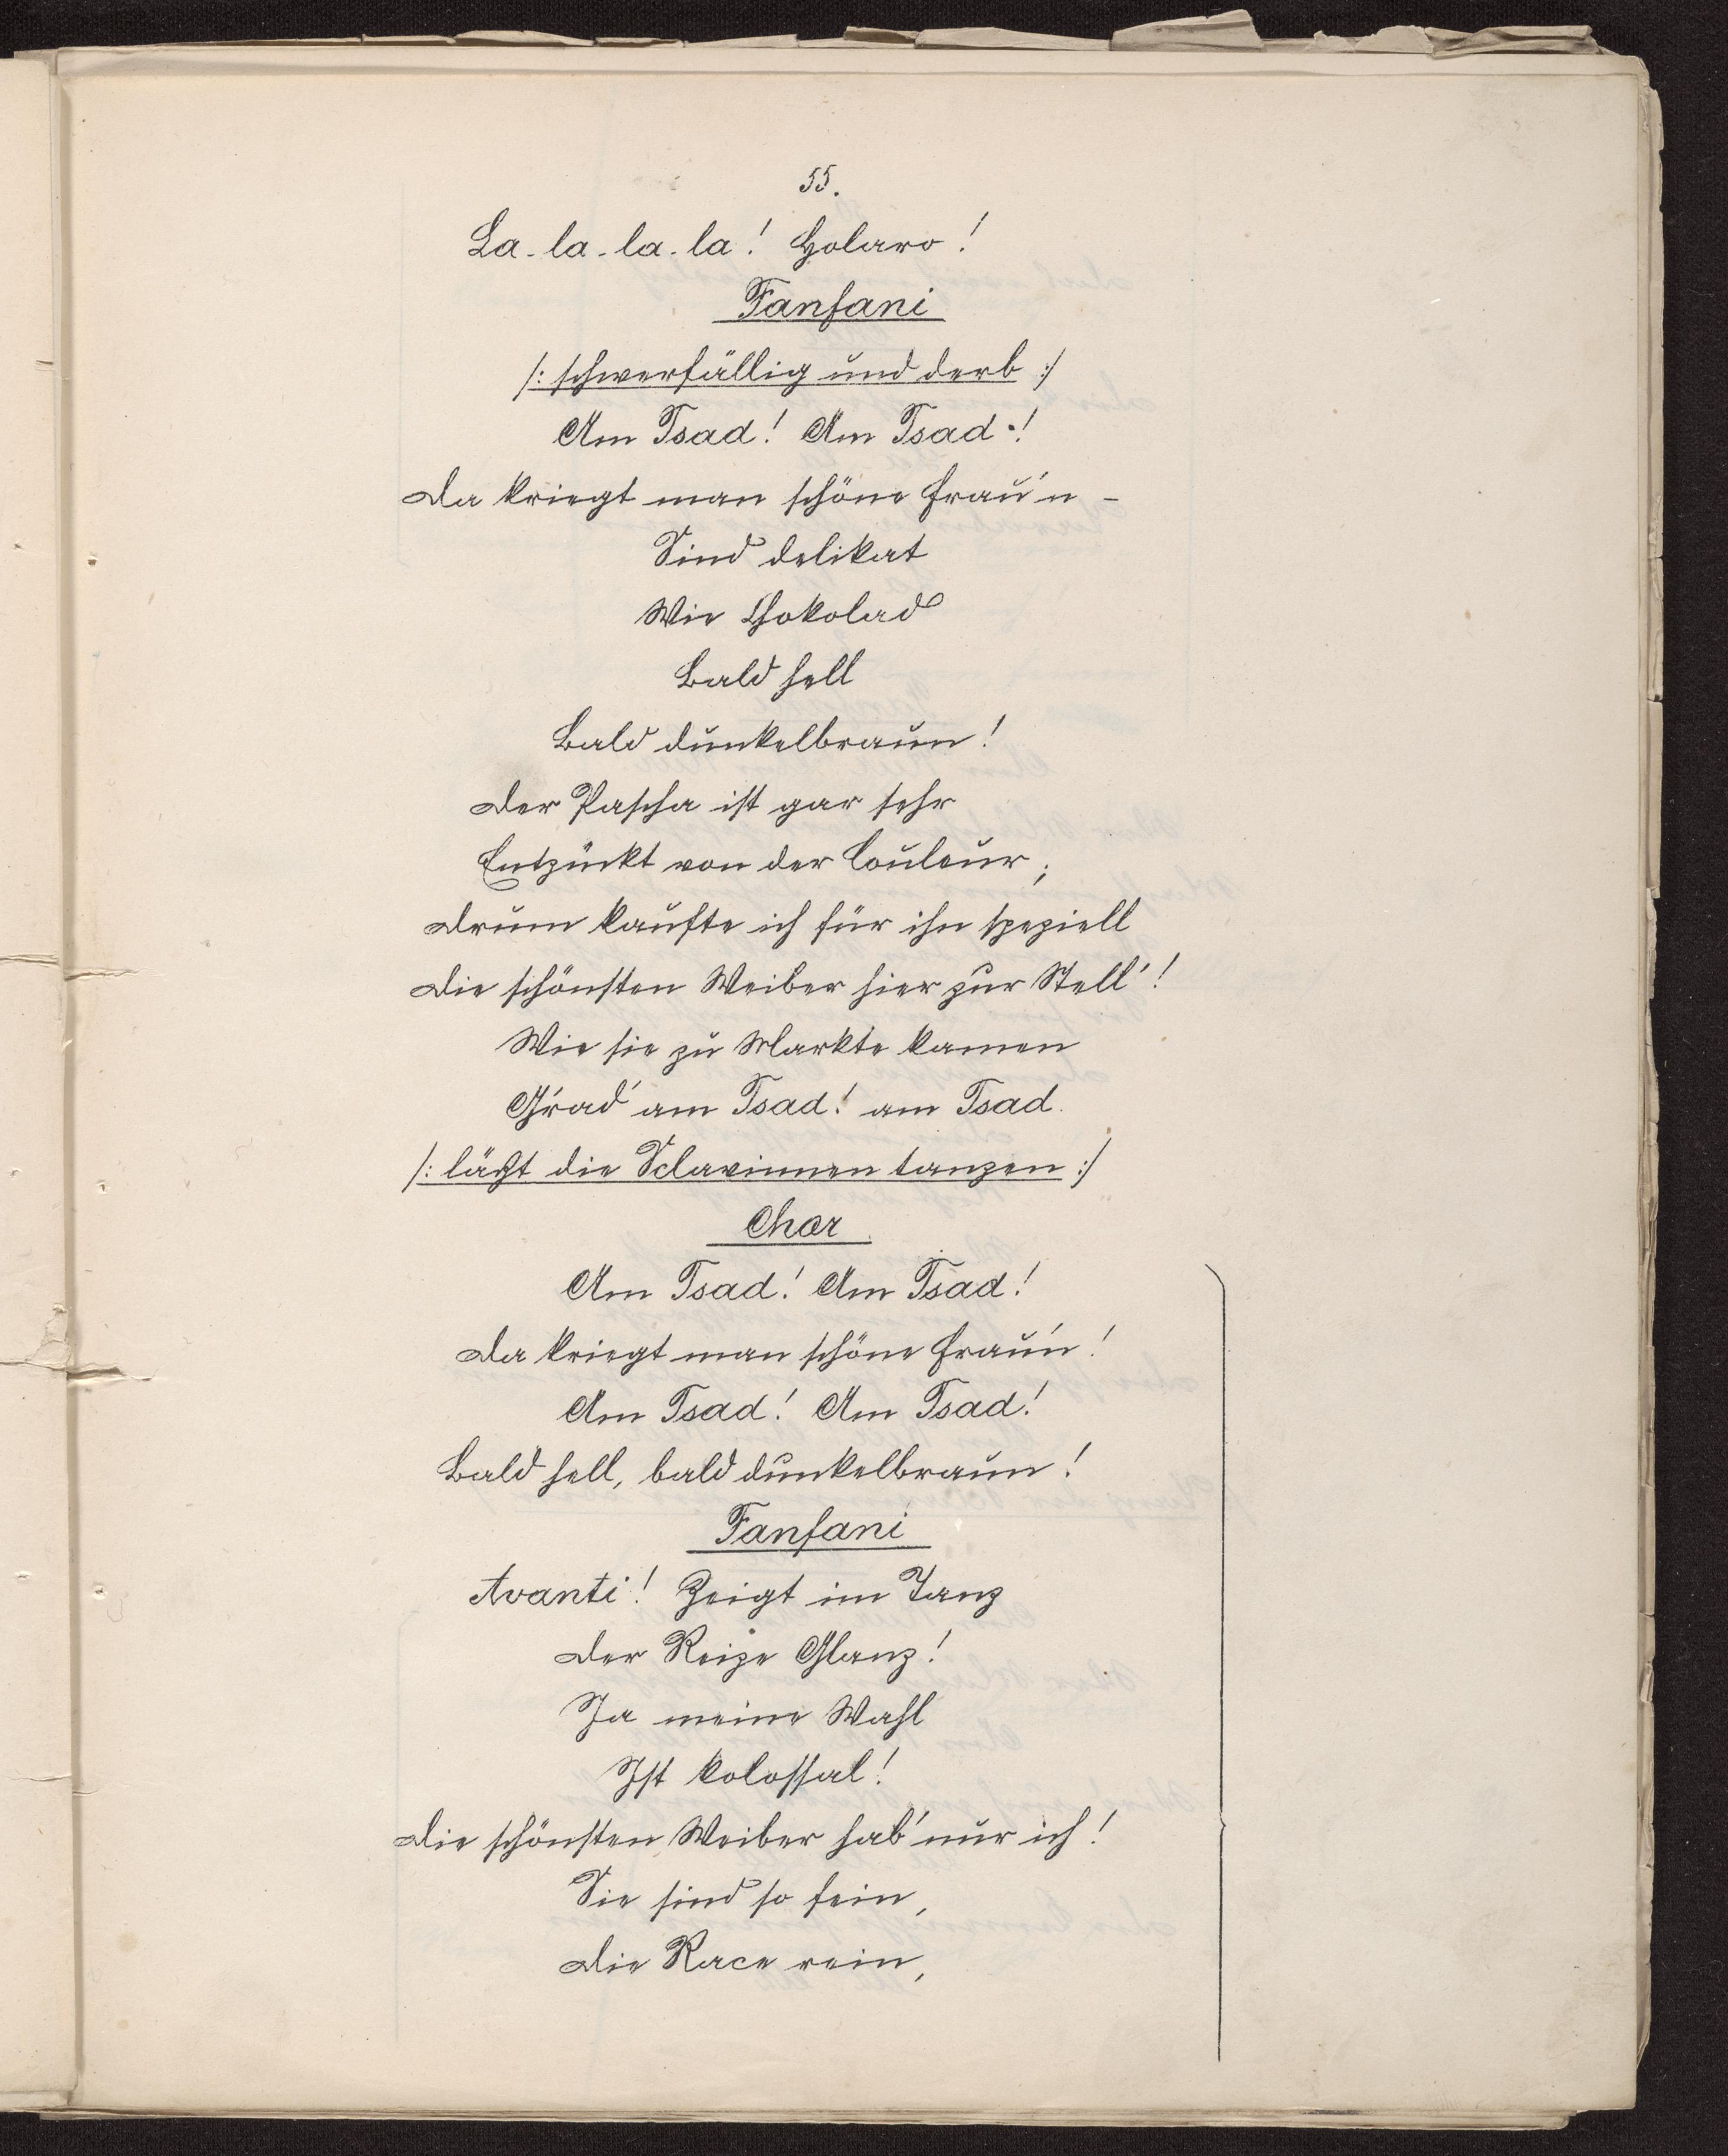 55.
La-la-la-la! Holaro!
Fanfani
/: schwerfällig und derb :/
Am Tsad! Am Tsad!
Da kriegt man schöne Frau'n –
Sind delikat
Wie Chokolad
Bald hell
Bald dunkelbraun!
Der Pascha ist gar sehr
Entzückt von der Couleur;
Drum kaufte ich für ihn speziell
Die schönsten Weiber hier zur Stell'!
Wie sie zu Markte kamen
G'rad' am Tsad! am Tsad.
/: läßt die Sclavinnen tanzen :/
Chor
Am Tsad! Am Tsad!
Da kriegt man schöne Frau'n!
Am Tsad! Am Tsad!
Bald hell, bald dunkelbraun!
Fanfani
Avanti! Zeigt im Tanz
Der Reize Glanz!
Ja meine Wahl
Ist kolossal!
Die schönsten Weiber hab' nur ich!
Sie sind so fein,
Die Race rein,